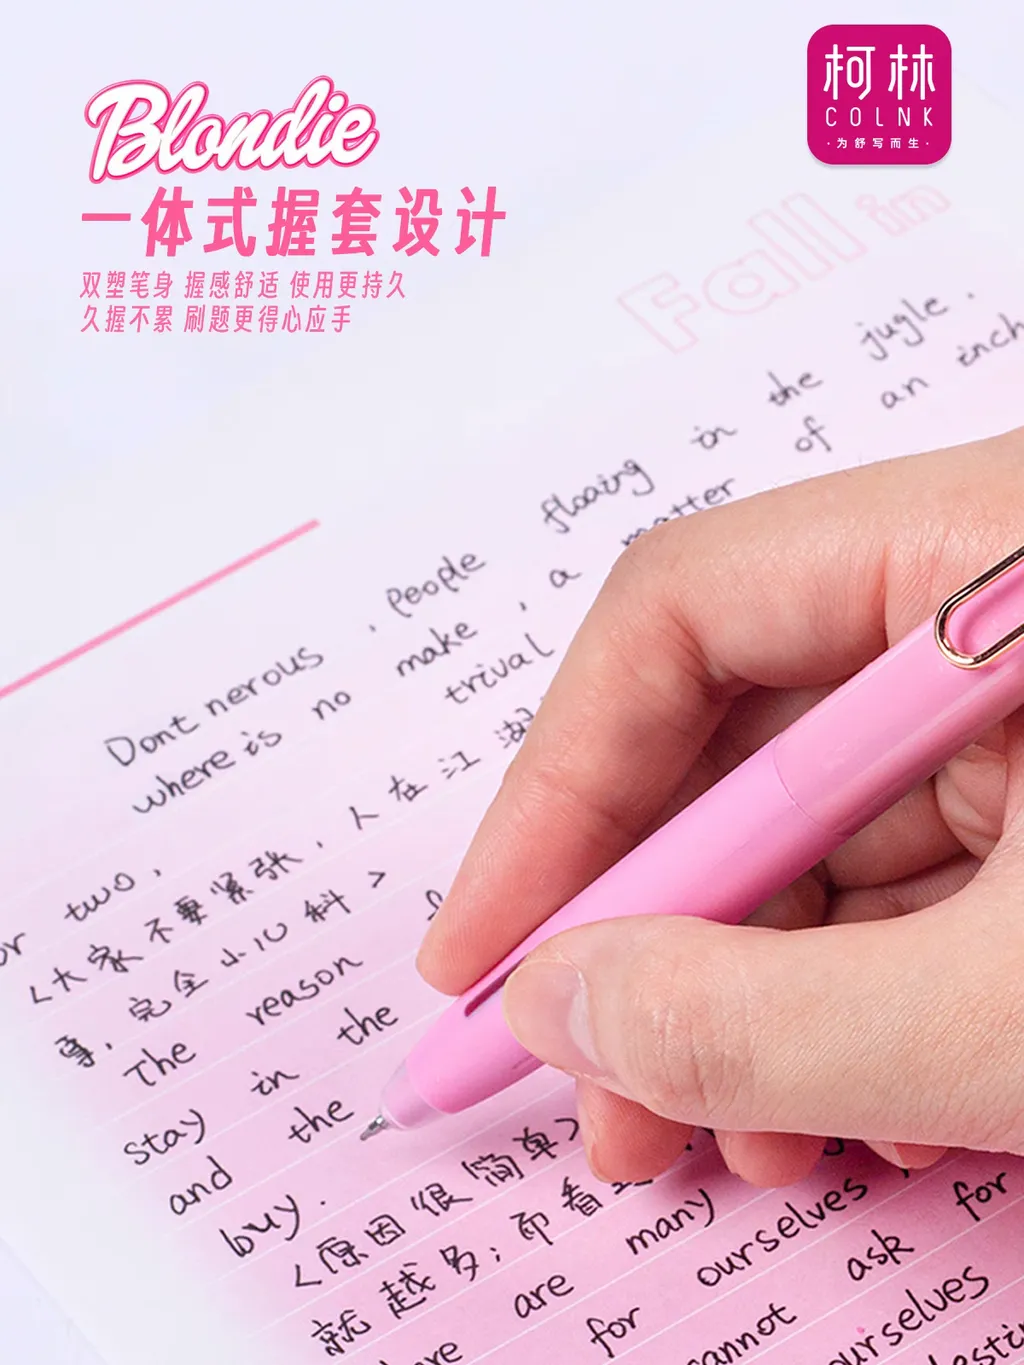 柯林
COLNK
·为舒写而生·
Blondie
一体式握套设计
双塑笔身 握感舒适 使用更持久
久握不累 刷题更得心应手
Fall in
Dont nerous , people floaing in the jugle .
where is no make , a matter of an inch
or two , trival
<大家不要紧张 , 人在江湖
尊 , 完全小心科 >
The reason
stay in the
and the
buy .
<原因很简单>
就越多 ; 而看
are many ourselves
for cannot ask for
ourselves